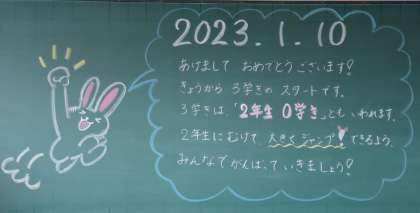 2023.1.10
あけまして おめでとうございます!
きょうから 3学きの スタートです。
3学きは、「2年生 0学き」とも いわれます。
2年生にむけて、大きくジャンプできるよう、
みんなでがんばっていきましょう!